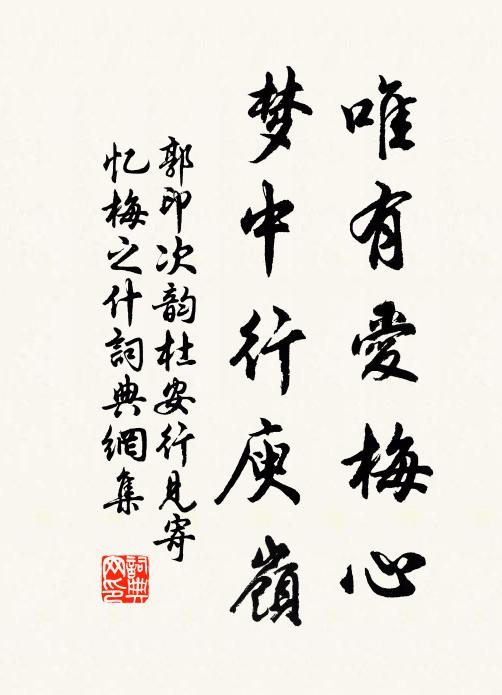 唯有愛梅心
梦中行庾嶺
郭印次韵杜安行見寄
忆梅之什詞典網集
詞典网印